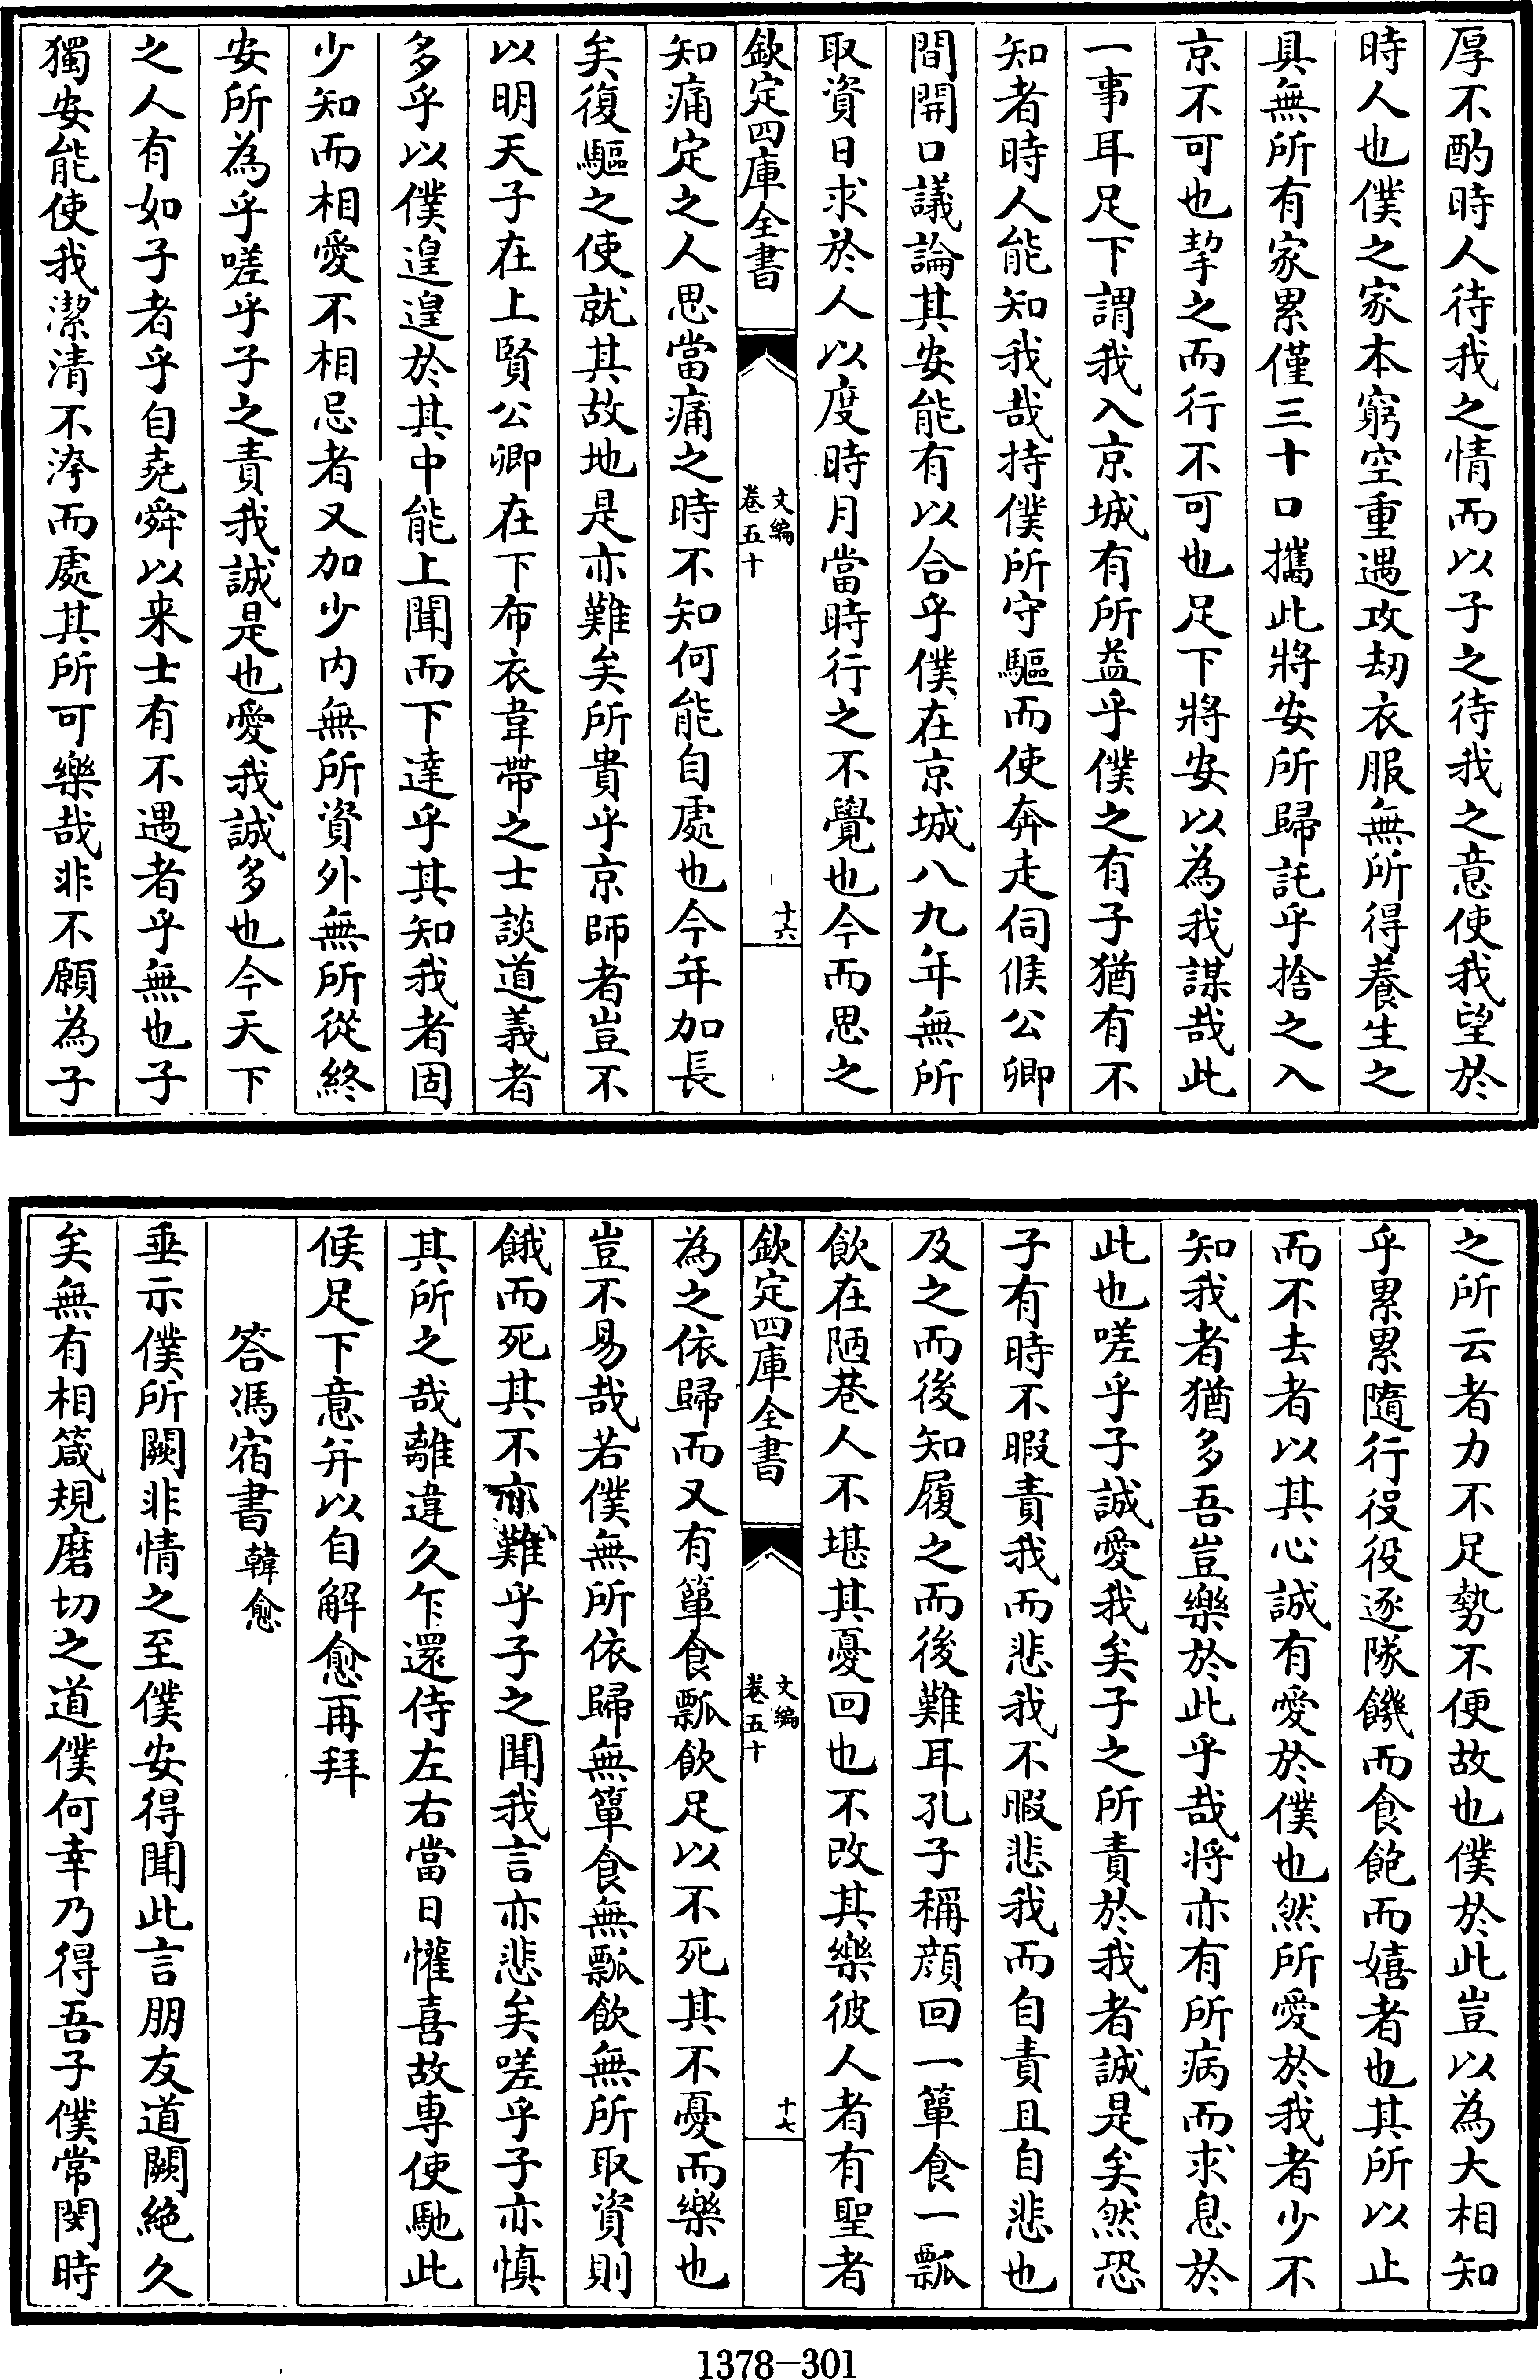 厚不酌時人待我之情而以子之待我之意使我望於
時人也僕之家本窮空重遇攻刼衣服無所得養生之
具無所有家累僅三十口攜此將安所歸託乎捨之入
京不可也挈之而行不可也足下將安以為我謀哉此
一事耳足下謂我入京城有所益乎僕之有子猶有不
知者時人能知我哉持僕所守驅而使奔走伺候公卿
間開口議論其安能有以合乎僕在京城八九年無所
取資日求於人以度時月當時行之不覺也今而思之
欽定四庫全書
文編
卷五十
十六
知痛定之人思當痛之時不知何能自處也今年加長
矣復驅之使就其故地是亦難矣所貴乎京師者豈不
以明天子在上賢公卿在下布衣韋帶之士談道義者
多乎以僕遑遑於其中能上聞而下達乎其知我者固
少知而相愛不相忌者又加少内無所資外無所從終
安所為乎嗟乎子之責我誠是也愛我誠多也今天下
之人有如子者乎自堯舜以来士有不遇者乎無也子
獨安能使我潔清不洿而處其所可樂哉非不願為子
之所云者力不足勢不便故也僕於此豈以為大相知
乎累累隨行役役逐隊饑而食飽而嬉者也其所以止
而不去者以其心誠有愛於僕也然所愛於我者少不
知我者猶多吾豈樂於此乎哉将亦有所病而求息於
此也嗟乎子誠愛我矣子之所責於我者誠是矣然恐
子有時不暇責我而悲我不暇悲我而自責且自悲也
及之而後知履之而後難耳孔子稱顔回一簞食一瓢
飲在陋巷人不堪其憂回也不改其樂彼人者有聖者
欽定四庫全書
文編
卷五十
十七
為之依歸而又有簞食瓢飲足以不死其不憂而樂也
豈不易哉若僕無所依歸無簞食無瓢飲無所取資則
餓而死其不亦難乎子之聞我言亦悲矣嗟乎子亦慎
其所之哉離違久乍還侍左右當日懽喜故専使馳此
候足下意并以自解愈再拜
答馮宿書韓愈
垂示僕所闕非情之至僕安得聞此言朋友道闕絶久
矣無有相箴規磨切之道僕何幸乃得吾子僕常閔時
1378-301